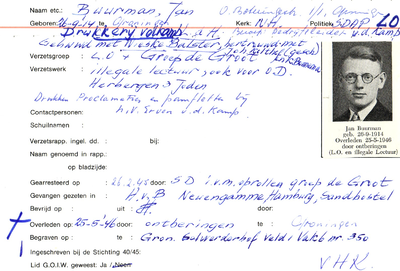 Naam etc.: Buurman, Jan O. Boteringestr. 1/1, Gron.
Geboren: 26-9-'14 te Groningen Kerk: N.H. Politiek: SDAP LO
Drukkerij Volkamp L.d.H. Beroep bedrijfsleider v.d. Kamp
Gehuwd met Nieske Balster, hertrouwd met
Verzetsgroep: L.O. + Groep de Groot
Verzetswerk: illegale lectuur, ook voor O.D.
Herbergen 3 Joden
Drukken Proclamaties en pamfletten bij
Contactpersonen: h.v. Erven v.d. Kamp
Schuilnaam :
Verzetsrapp. ingel. dd. bij:
Naam genoemd in rapp.:
op bladzijde:
Gearresteerd op : 26-2-45 door: SD i.v.m. oprollen groep de Groot
Gevangen gezeten in : H.v.B Neuengamme, Hamburg, Sandbostel
Bevrijd op : uit:
Overleden op: 25-5-'46 door: ontberingen te Groningen
Begraven op : Gron. Selwerderhof Veld 1 Vak b nr. 350
Ingeschreven bij de Stichting 40/45:
Lid G.O.I.W. geweest: Ja / Neen VHK
Jan Buurman
geb. 26-9-1914
Overleden 25-5-1946
door ontberingen
(L.O. en illegale Lectuur)